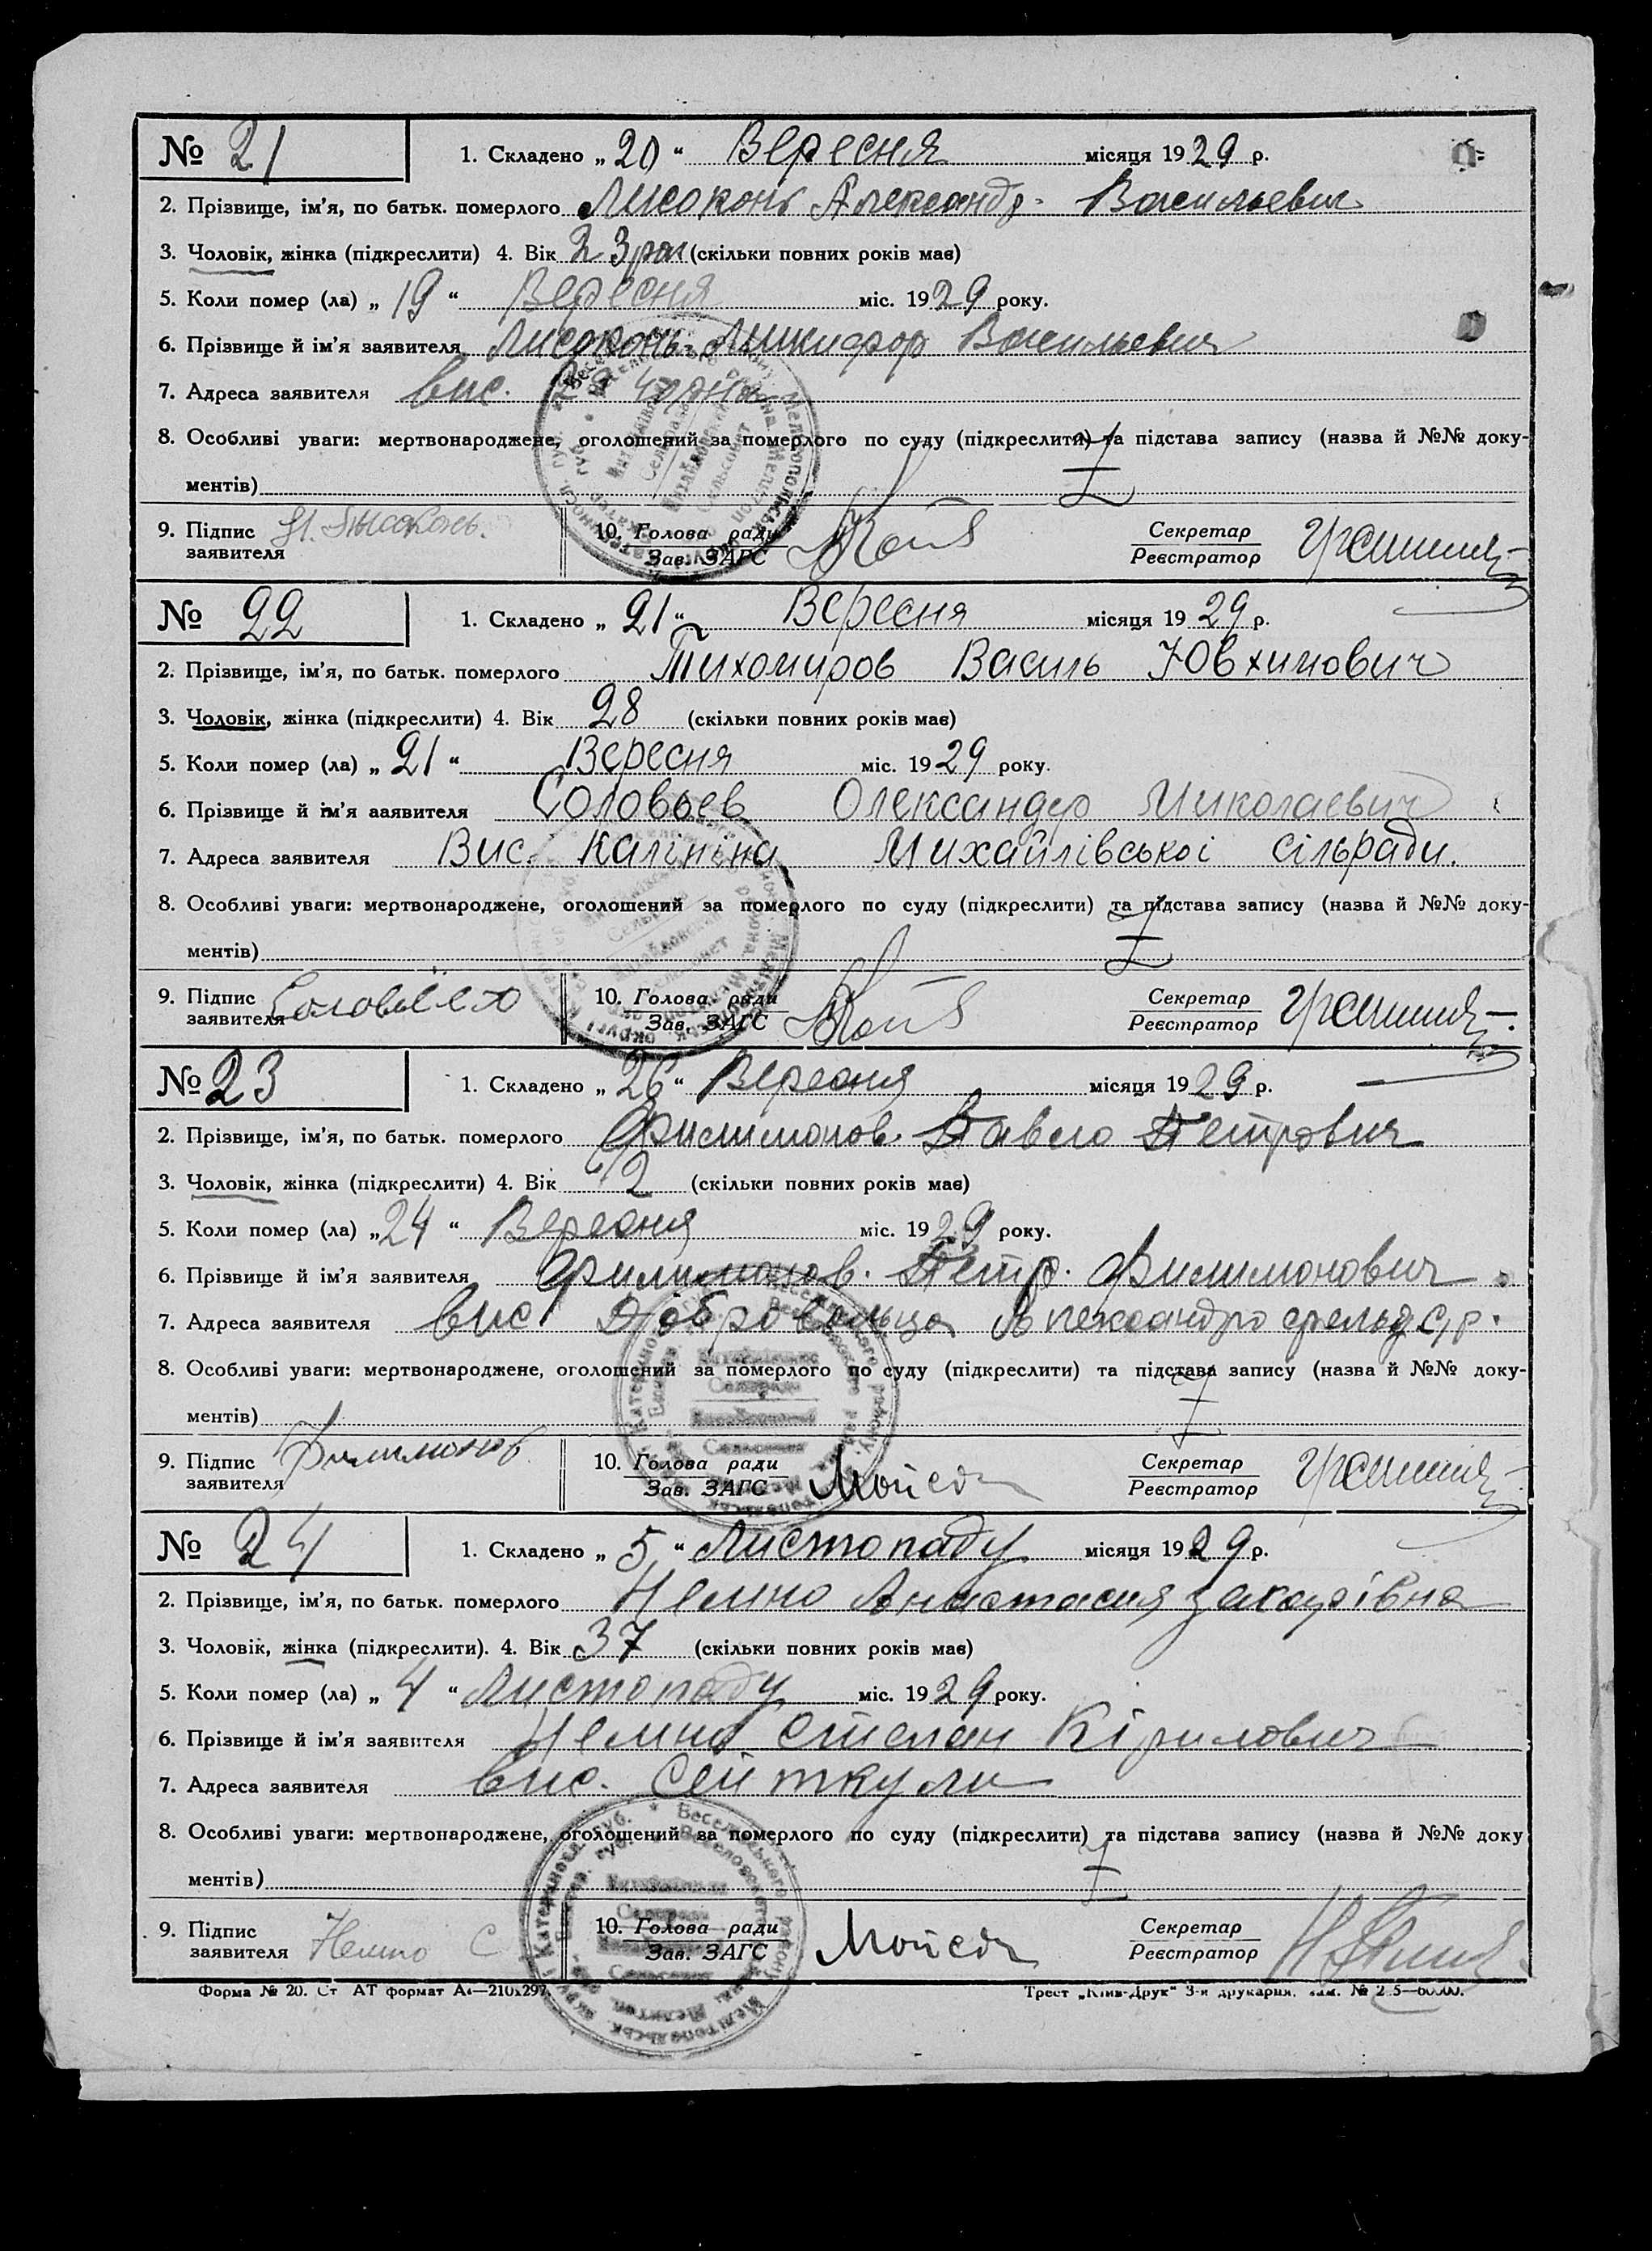 № 21 1. Складено „20“ Вересня місяця 1929 р.
2. Прізвище, ім'я, по батьк. померлого Лисоконь Александр Васильевич
3. Чоловік, жінка (підкреслити) 4. Вік 23 (скільки повних років має)
5. Коли помер (ла) „19“ Вересня міс. 1929 року.
6. Прізвище й ім'я заявителя Лисоконь Микифор Васильевич
7. Адреса заявителя вис.
8. Особливі уваги: мертвонароджене, оголошений за померлого по суду (підкреслити) та підстава запису (назва й №№ доку-
ментів)
9. Підпис заявителя Н. Лысоконь. 10. Голова ради Зав. ЗАГС Секретар Реєстратор
№ 22 1. Складено „21“ Вересня місяця 1929 р.
2. Прізвище, ім'я, по батьк. померлого Тихомиров Василь Ювхимович
3. Чоловік, жінка (підкреслити) 4. Вік 28 (скільки повних років має)
5. Коли помер (ла) „21“ Вересня міс. 1929 року.
6. Прізвище й ім'я заявителя Соловьев Олександр Миколаевич
7. Адреса заявителя Вис. Калініна Михайлівської сільради.
8. Особливі уваги: мертвонароджене, оголошений за померлого по суду (підкреслити) та підстава запису (назва й №№ доку-
ментів)
9. Підпис заявителя 10. Голова ради Зав. ЗАГС Секретар Реєстратор
№ 23 1. Складено „26“ Вересня місяця 1929 р.
2. Прізвище, ім'я, по батьк. померлого Филимонов Павло Петрович
3. Чоловік, жінка (підкреслити) 4. Вік 12 (скільки повних років має)
5. Коли помер (ла) „24“ Вересня міс. 1929 року.
6. Прізвище й ім'я заявителя Филимонов Петр Филимонович
7. Адреса заявителя вис Добровольца Александрофельд с/р.
8. Особливі уваги: мертвонароджене, оголошений за померлого по суду (підкреслити) та підстава запису (назва й №№ доку-
ментів)
9. Підпис заявителя Филимонов 10. Голова ради Зав. ЗАГС Секретар Реєстратор
№ 24 1. Складено „5“ Листопаду місяця 1929 р.
2. Прізвище, ім'я, по батьк. померлого Немно Анастасия Захарівна
3. Чоловік, жінка (підкреслити). 4. Вік 37 (скільки повних років має)
5. Коли помер (ла) „4“ Листопаду міс. 1929 року.
6. Прізвище й ім'я заявителя Немно Степан Кірилович
7. Адреса заявителя вис. Сейткули
8. Особливі уваги: мертвонароджене, оголошений за померлого по суду (підкреслити) та підстава запису (назва й №№ доку
ментів)
9. Підпис заявителя Немно С 10. Голова ради Зав. ЗАГС Секретар Реєстратор
Форма № 20. Ст АТ формат А4—210х297 Трест „Київ-Друк“ 3-я друкарня.